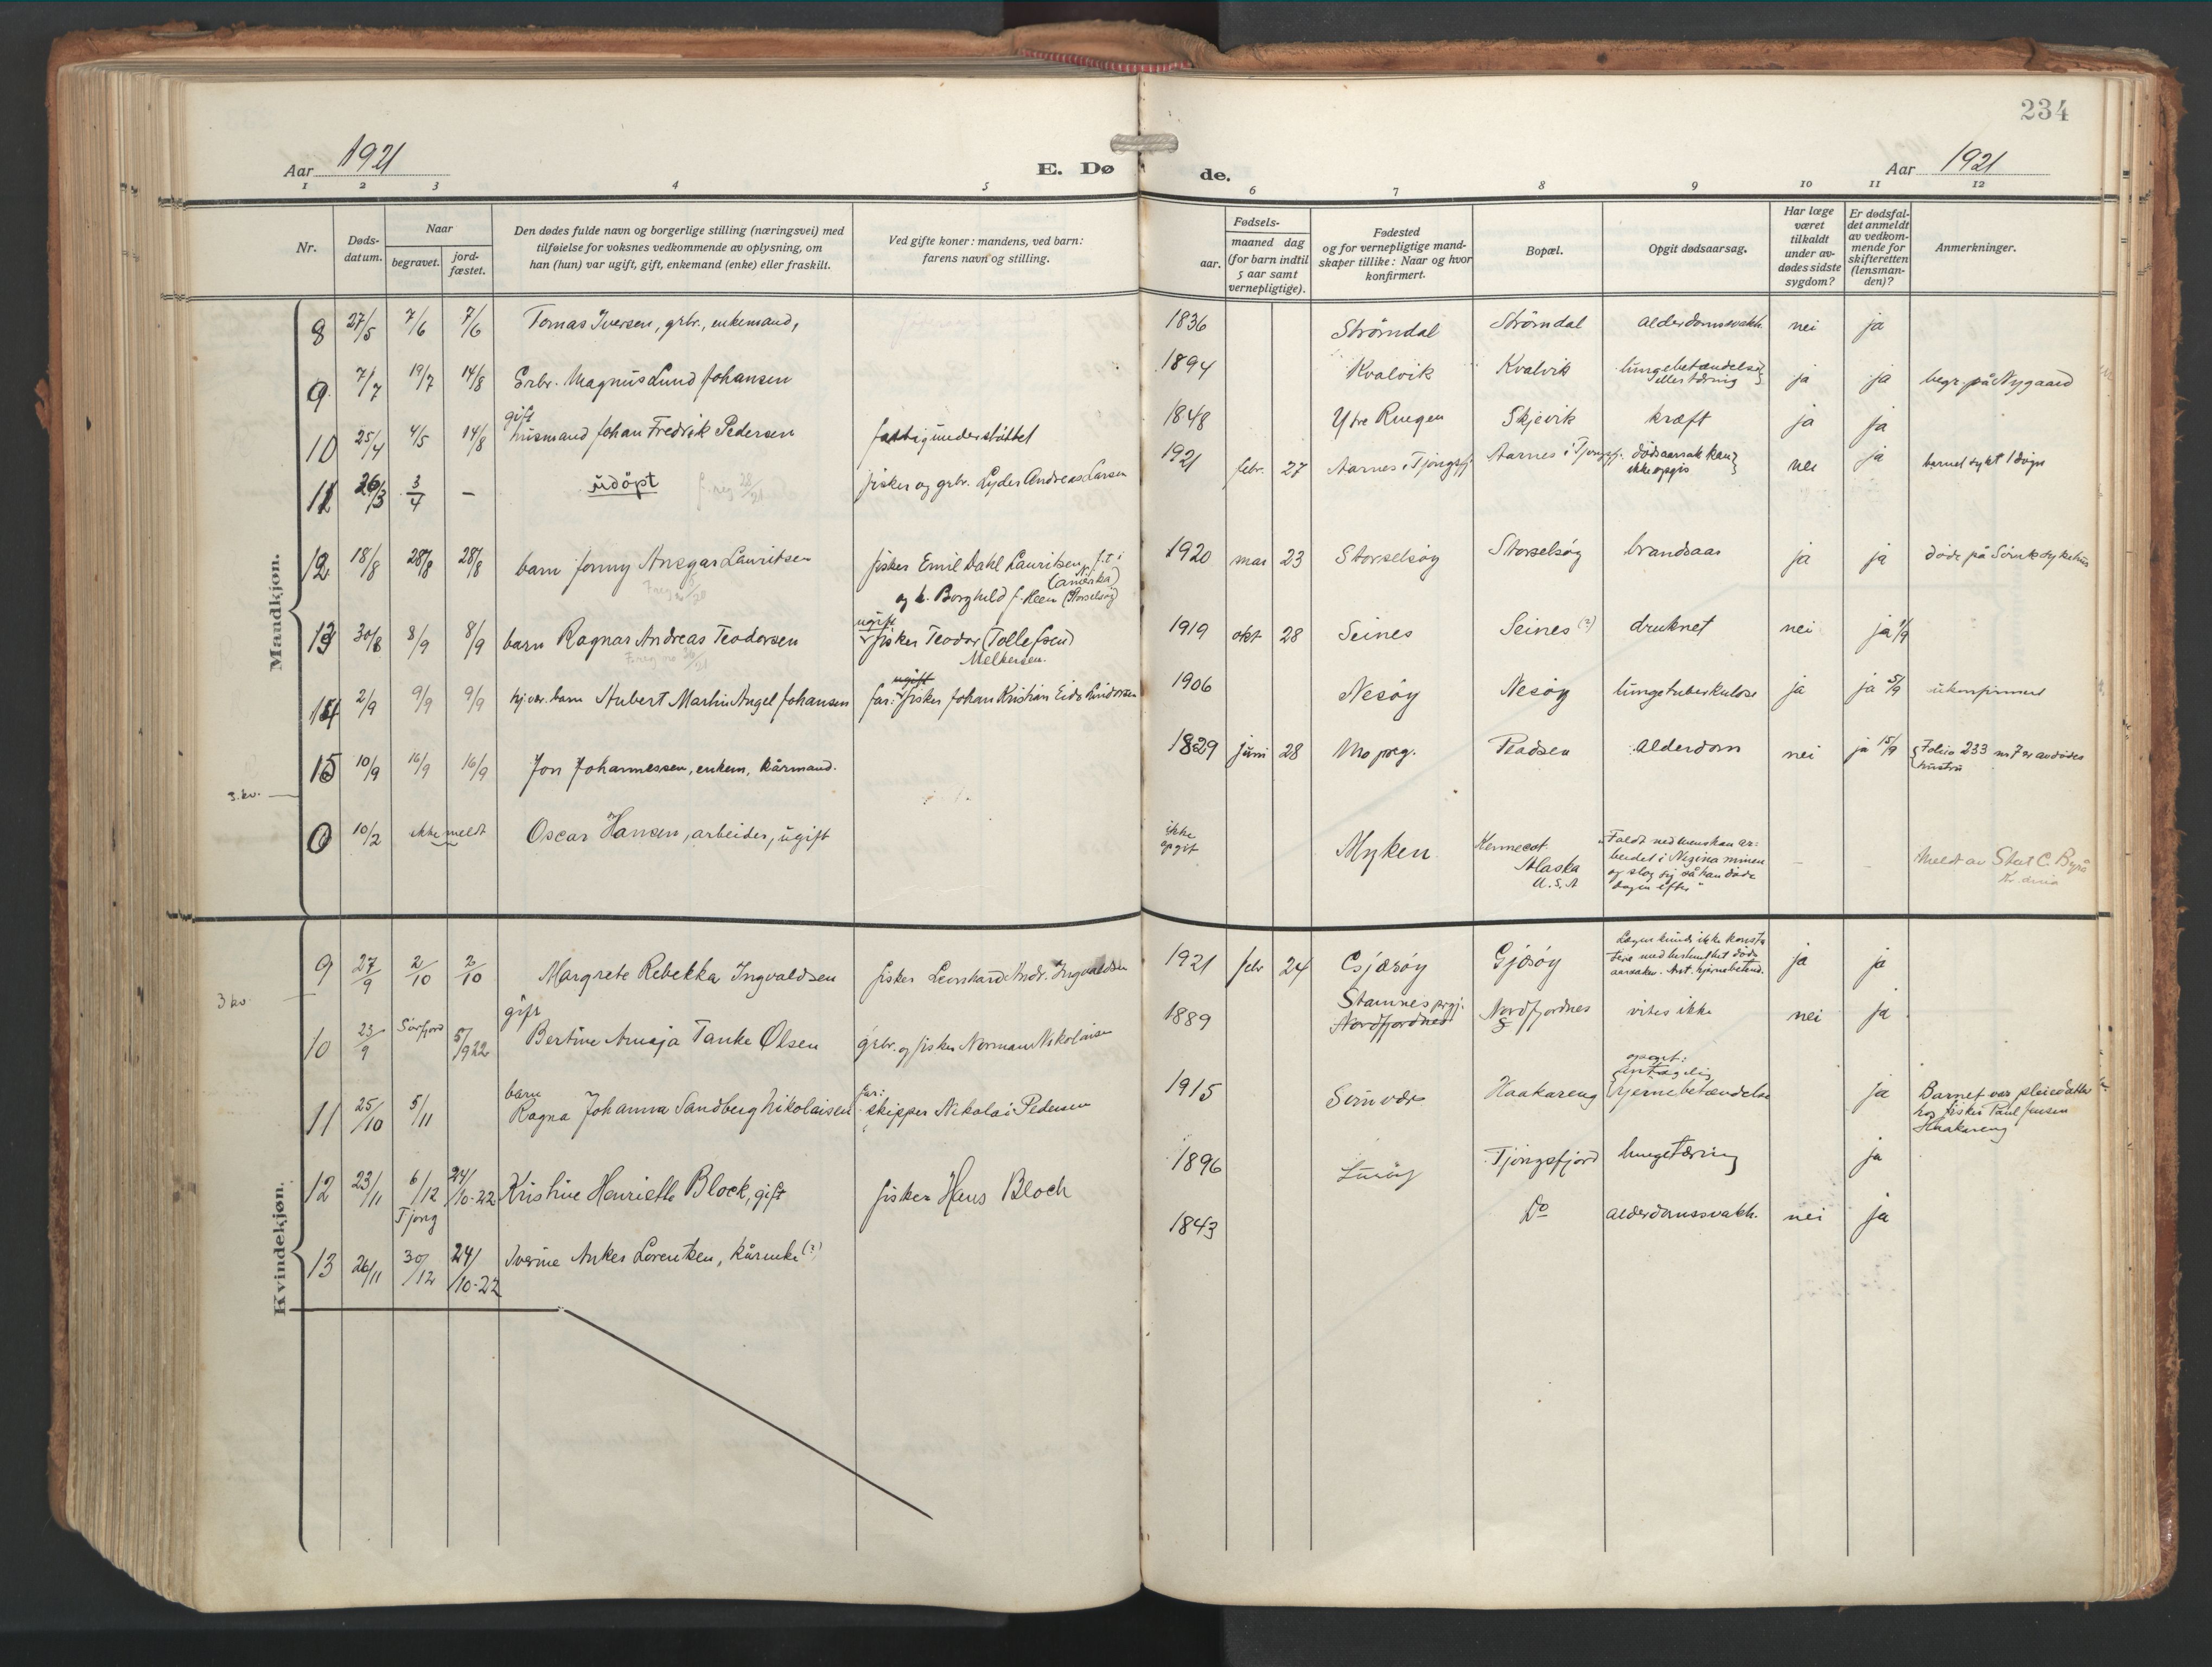 234
Aar 1921
E. Dø
de.
Aar 1921
1 2 3 4 5 6 7 8 9 10 11 12
Nr.
Døds-
datum.
Naar
begravet.
jord-
fæstet.
Den dødes fulde navn og borgerlige stilling (næringsvei) med
tilføielse for voksnes vedkommende av oplysning, om
han (hun) var ugift, gift, enkemand (enke) eller fraskilt.
Ved gifte koner: mandens, ved barn:
farens navn og stilling.
Fødsels-
aar.
maaned dag
(for barn indtil
5 aar samt
vernepligtige).
Fødested
og for vernepligtige mand-
skaper tillike: Naar og hvor
konfirmert.
Bopæl.
Opgit dødsaarsag.
Har læge
været
tilkaldt
under av-
dødes sidste
sygdom?
Er dødsfal-
det anmeldt
av vedkom-
mende for
skifteretten
(lensman-
den)?
Anmerkninger.
Mandkjøn.
8 27/5 7/6 7/6 Tomas Iversen, grbr., enkemand, 1836 Strömdal Strömdal alderdomssvakh. nei ja
9 7/7 19/7 14/8 Grbr. Magnus Lund Johansen 1894 Kvalvik Kvalvik lungebetændelse
eller tæring ja ja begr. på Nygaard
gift
10 25/4 4/5 14/8 husmand Johan Fredrik Pedersen fattigunderstöttet 1848 Ytre Ruegen Skjevik kræft ja ja
11 26/3 3/4 – udöpt f. reg 28/21 fisker og grbr. Lyder Andreas Larsen 1921 febr. 27 Aarnes i Tjongsfj. Aarnes i Tjongsfj. dödsaarsak kan
ikke opgis nei ja barnet sykt 1 dögn
12 18/8 28/8 28/8 barn Jonny Ansgar Lauritsen fisker Emil Dahl Lauritsen, f.t. i
(N. amerika)
og h. Borghild f. Heen (Storselsöy) 1920 mars 23 Storselsöy Storselsöy brandsaar ja ja döde på sykehus
13 30/8 8/9 8/9 barn Ragnar Andreas Teodorsen ugift
fisker Teodor (Tollefsen)
Melkersen. 1919 okt 28 Seines Seines (?) druknet nei ja 1/9
14 2/9 9/9 9/9 hj.vær. barn Hubert Martin Angel Johansen ugift
far: fisker Johan Kristian Eide Andersen 1906 Nesöy Nesöy lungetuberkulose ja ja 5/9 ukonfirmert
15 10/9 16/9 16/9 Jon Johannessen, enkem, kårmand. 1829 juni 28 Mo preg. alderdom nei ja 15/9 Folio 233 nr 7 er avdödes
hustru
3. kv.
0 10/2 ikke meldt Oscar Hansen, arbeider, ugift ikke
opgit Myken Kennecot
Alaska
U.S.A "Faldt ned hvor han ar-
beidet i minen
og slog sig så han döde
dagen efter" – – Meldt av Stat. C. Byrå
Kr.ania
Kvindekjøn.
9 27/9 2/10 2/10 Margrete Rebekka Ingvaldsen fisker Leonhard Andr. Ingvaldsen 1921 febr 24 Gjæsöy Lægen kunde ikke konsta
tere med bestemthet döds
aarsaken. Ant. hjernebetænd. ja ja
3 kv.
gift
10 23/9 Sörfjord 5/9 22 Bertine Amaja Tanke Olsen grbr. og fisker Norman Nikolaisen 1889 Stamnes prgj.
Nordfjordnes Nordfjordnes vites ikke nei ja
barn
11 25/10 5/11 Ragna Johanna Sandberg Nikolaisen far:
skipper Nikolai Pedersen 1915 Sörnvær Haakareng opgit:
antagelig
hjernebetændelse ja Barnet var pleiedatter
hos fisker Paul Jensen
Haakareng
12 23/11 6/12 24/10-22 Kristine Henriette Block, gift fisker Hans Bloch 1896 Luröy Tjongsfjord lungetæring ja
Tjong
13 26/11 30/12 24/10-22 Iverine Ankes Lorentzen, kårenke (?) 1843 Do alderdomssvakh. nei ja